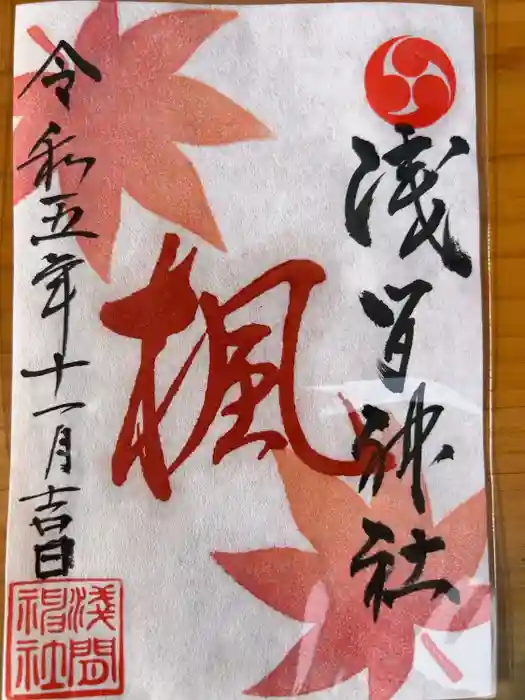 浅间神社
楓
令和五年十一月吉日
淺間神社